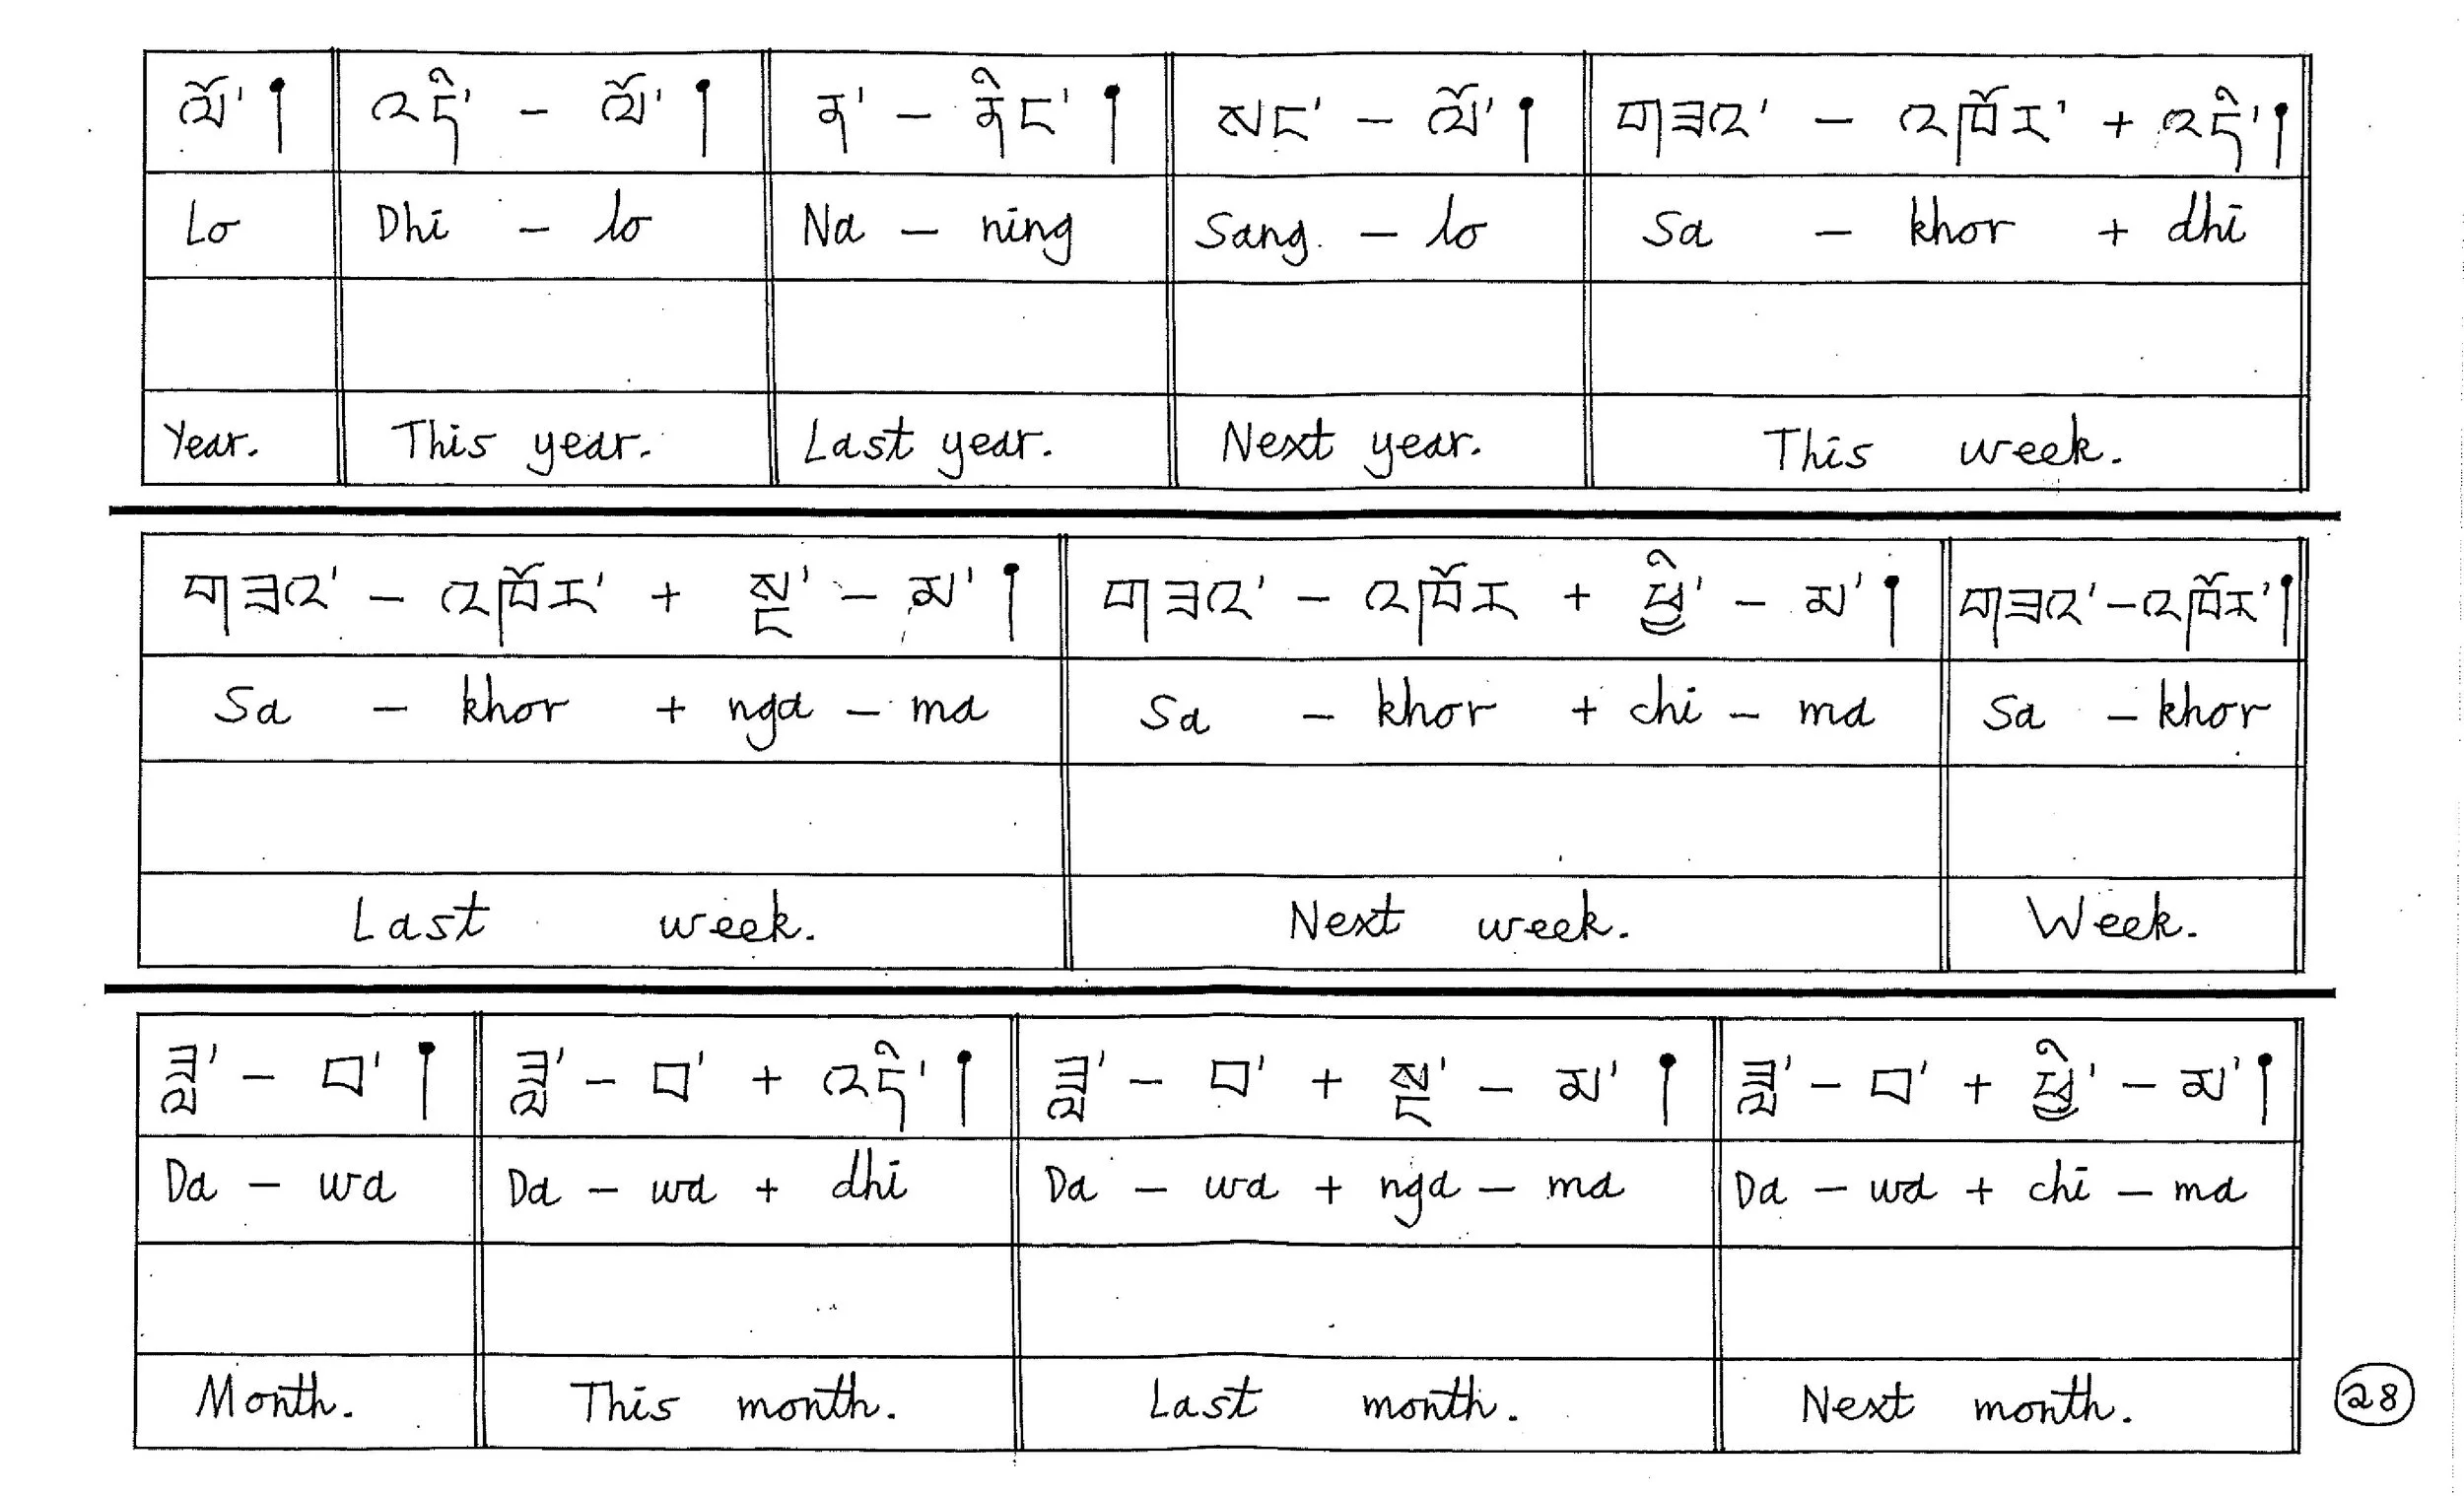 ལོ་། འདི་ - ལོ་། ན་ - ནིང་། སང་ - ལོ་། གཟའ་ - འཁོར་ + འདི་།
Lo Dhi - lo Na - ning Sang - lo Sa - khor + dhi
Year. This year. Last year. Next year. This week.
གཟའ་ - འཁོར་ + སྔ་ - མ་། གཟའ་ - འཁོར + ཕྱི་ - མ་། གཟའ་ - འཁོར་།
Sa - khor + nga - ma Sa - khor + chi - ma Sa - khor
Last week. Next week. Week.
ཟླ་ - བ་། ཟླ་ - བ་ + འདི་། ཟླ་ - བ་ + སྔ་ - མ་། ཟླ་ - བ་ + ཕྱི་ - མ་།
Da - wa Da - wa + dhi Da - wa + nga - ma Da - wa + chi - ma
Month. This month. Last month. Next month.
28